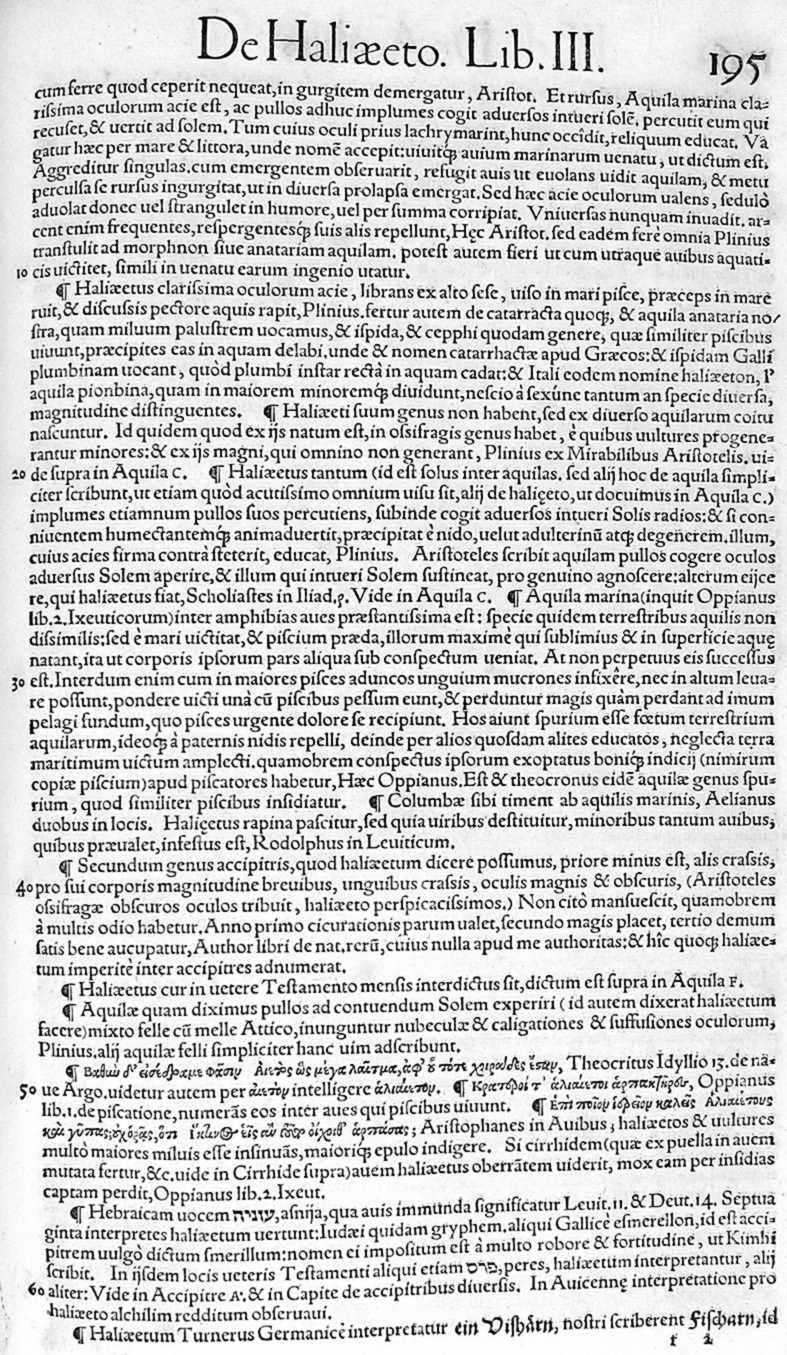 De Haliæeto. Lib. III. 195
cum ferre quod ceperit nequeat, in gurgitem demergatur, Aristot. Et rursus, Aquila marina cla-
rissima oculorum acie est, ac pullos adhuc implumes cogit aduersos intueri solē. percutit eum qui
recuset, & uertit ad solem. Tum cuius oculi prius lachrymarint, hunc occîdit, reliquum educat. Va
gatur hæc per mare & littora, unde nomē accepit: uiuitq́ꝫ auium marinarum uenatu, ut dictum est.
Aggreditur singulas. cum emergentem obseruarit, refugit auis ut euolans uidit aquilam, & metu
perculsa se rursus ingurgitat, ut in diuersa prolapsa emergat. Sed hæc acie oculorum ualens, sedulò
aduolat donec uel strangulet in humore, uel per summa corripiat. Vniuersas nunquam inuadit. ar-
cent enim frequentes, respergentesq́ꝫ suis alis repellunt, Hęc Aristot. sed eadem ferè omnia Plinius
transtulit ad morphnon siue anatariam aquilam. potest autem fieri ut cum utraque auibus aquati-
10 cis uictitet, simili in uenatu earum ingenio utatur.
¶ Haliæetus clarissima oculorum acie, librans ex alto sese, uiso in mari pisce, præceps in mare
ruit, & discussis pectore aquis rapit, Plinius. fertur autem de catarracta quoqꝫ, & aquila anataria no/
stra, quam miluum palustrem uocamus, & ispida, & cepphi quodam genere, quæ similiter piscibus
uiuunt, præcipites eas in aquam delabi. unde & nomen catarrhactæ apud Græcos: & ispidam Galli
plumbinam uocant, quòd plumbi instar rectà in aquam cadat: & Itali eodem nomine haliæeton, l'
aquila pionbina, quam in maiorem minoremq́ꝫ diuidunt, nescio à sexûne tantum an specie diuersa,
magnitudine distinguentes. ¶ Haliæeti suum genus non habent, sed ex diuerso aquilarum coitu
nascuntur. Id quidem quod ex ijs natum est, in ossifragis genus habet, è quibus uultures progene-
rantur minores: & ex ijs magni, qui omnino non generant, Plinius ex Mirabilibus Aristotelis. ui-
20 de supra in Aquila C. ¶ Haliæetus tantum (id est solus inter aquilas. sed alij hoc de aquila simpli-
citer scribunt, ut etiam quòd acutissimo omnium uisu sit, alij de halięeto, ut docuimus in Aquila C.)
implumes etiamnum pullos suos percutiens, subinde cogit aduersos intueri Solis radios: & si con-
niuentem humectantemq́ꝫ animaduertit, præcipitat è nido, uelut adulterinū atqꝫ degenerem. illum,
cuius acies firma contrà steterit, educat, Plinius. Aristoteles scribit aquilam pullos cogere oculos
aduersus Solem aperire, & illum qui intueri Solem sustineat, pro genuino agnoscere: alterum eijce
re, qui haliæetus fiat, Scholiastes in Iliad. ρ. Vide in Aquila C. ¶ Aquila marina (inquit Oppianus
lib. 2. Ixeuticorum) inter amphibias aues præstantissima est: specie quidem terrestribus aquilis non
dissimilis: sed è mari uictitat, & piscium præda, illorum maximè qui sublimius & in superficie aquę
natant, ita ut corporis ipsorum pars aliqua sub conspectum ueniat. At non perpetuus eis successus
30 est. Interdum enim cum in maiores pisces aduncos unguium mucrones infixêre, nec in altum leua-
re possunt, pondere uicti unà cū piscibus pessum eunt, & perduntur magis quàm perdant ad imum
pelagi fundum, quo pisces urgente dolore se recipiunt. Hos aiunt spurium esse fœtum terrestrium
aquilarum, ideoq́ꝫ à paternis nidis repelli, deinde per alios quosdam alites educatos, neglecta terra
maritimum uictum amplecti. quamobrem conspectus ipsorum exoptatus boniq́ꝫ indicij (nimirum
copiæ piscium) apud piscatores habetur, Hæc Oppianus. Est & theocronus eidē aquilæ genus spu-
rium, quod similiter piscibus insidiatur. ¶ Columbæ sibi timent ab aquilis marinis, Aelianus
duobus in locis. Halięetus rapina pascitur, sed quia uiribus destituitur, minoribus tantum auibus,
quibus præualet, infestus est, Rodolphus in Leuiticum.
¶ Secundum genus accipitris, quod haliæetum dicere possumus, priore minus est, alis crassis,
40 pro sui corporis magnitudine breuibus, unguibus crassis, oculis magnis & obscuris, (Aristoteles
ossifragæ obscuros oculos tribuit, haliæeto perspicacissimos.) Non citò mansuescit, quamobrem
à multis odio habetur. Anno primo cicurationis parum ualet, secundo magis placet, tertio demum
satis bene aucupatur, Author libri de nat. rerū, cuius nulla apud me authoritas: & hîc quoqꝫ haliæe-
tum imperitè inter accipitres adnumerat.
¶ Haliæetus cur in uetere Testamento mensis interdictus sit, dictum est supra in Aquila F.
¶ Aquilæ quam diximus pullos ad contuendum Solem experiri (id autem dixerat haliæetum
facere) mixto felle cū melle Attico, inunguntur nubeculæ & caligationes & suffusiones oculorum,
Plinius. alij aquilæ felli simpliciter hanc uim adscribunt.
¶ Βαθὺν δ' εἰσέδραμε Φᾶσιν Αἰετὸς ὣς μέγα λαῖτμα, ἀφ' οὗ τότε χοιράδες ἔσταν, Theocritus Idyllio 13. de na-
50 ue Argo. uidetur autem per αἰετὸν intelligere ἁλιαίετον. ¶ Κρατεροί τ' ἁλιαίετοι ἁρπακτῆρες, Oppianus
lib. 1. de piscatione, numerās eos inter aues qui piscibus uiuunt. ¶ Ἐπὶ ποῖον ἱερεῖον καλεῖς Ἁλιαιέτους
καὶ γῦπας; οὐχ ὁρᾷς, ὅτι ἰκτῖνος εἷς ἂν τοῦτο οἴχοιθ' ἁρπάσας; Aristophanes in Auibus; haliæetos & uultures
multò maiores miluis esse insinuās, maioriq́ꝫ epulo indigere. Si cirrhidem (quæ ex puella in auem
mutata fertur, &c. uide in Cirrhide supra) auem haliæetus oberrātem uiderit, mox eam per insidias
captam perdit, Oppianus lib. 2. Ixeut.
¶ Hebraicam uocem עזניה, asnija, qua auis immunda significatur Leuit. 11. & Deut. 14. Septua
ginta interpretes haliæetum uertunt: Iudæi quidam gryphem. aliqui Gallicè esmerellon, id est acci-
pitrem uulgò dictum smerillum: nomen ei impositum est à multo robore & fortitudine, ut Kimhi
scribit. In ijsdem locis ueteris Testamenti aliqui etiam פרס, peres, haliæetum interpretantur, alij
60 aliter: Vide in Accipitre A. & in Capite de accipitribus diuersis. In Auicennę interpretatione pro
haliæeto alchilim redditum obseruaui.
¶ Haliæetum Turnerus Germanicè interpretatur ein Vishärn, nostri scriberent Fischarn, id
r 2